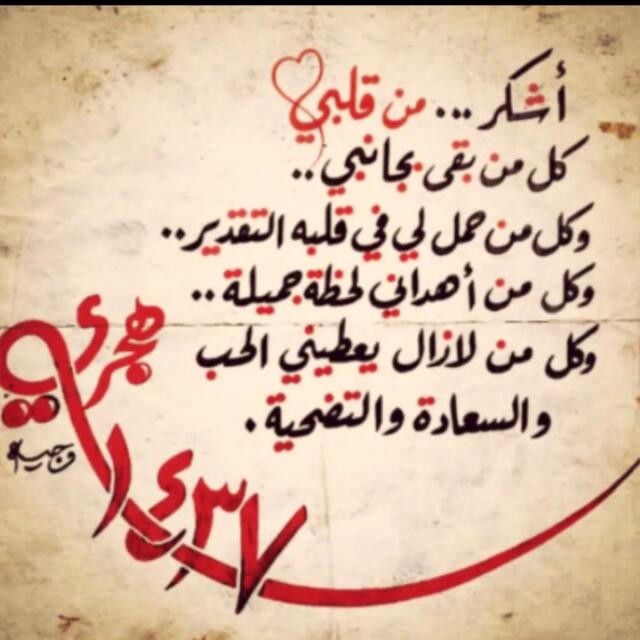 أشكر ... من قلبي
كل من بقى بجانبي ..
وكل من حمل لي في قلبه التقدير ..
وكل من أهداني لحظة جميلة ..
وكل من لازال يعطيني الحب
والسعادة والتضحية .
١٤٣٧
هجري